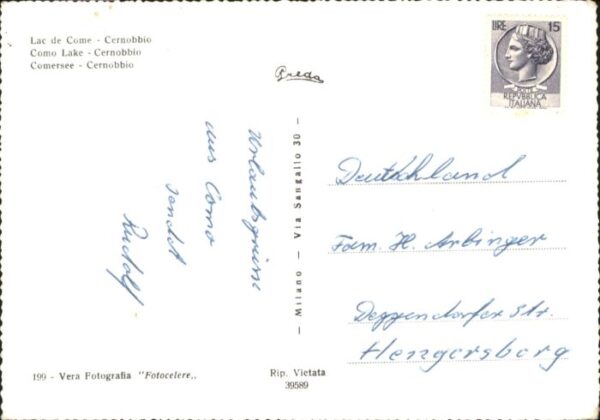 Lac de Come - Cernobbio
Como Lake - Cernobbio
Comersee - Cernobbio
Breda
LIRE 15
REPVBBLICA
ITALIANA
Urlaubsgrüsse
aus Como
sendet
Rudolf
— Milano - Via Sangallo 30 —
Deutschland
Fam. H. Arbinger
Deggendorfer Str.
Hengersberg
199 - Vera Fotografia "Fotocelere„
Rip. Vietata
39589